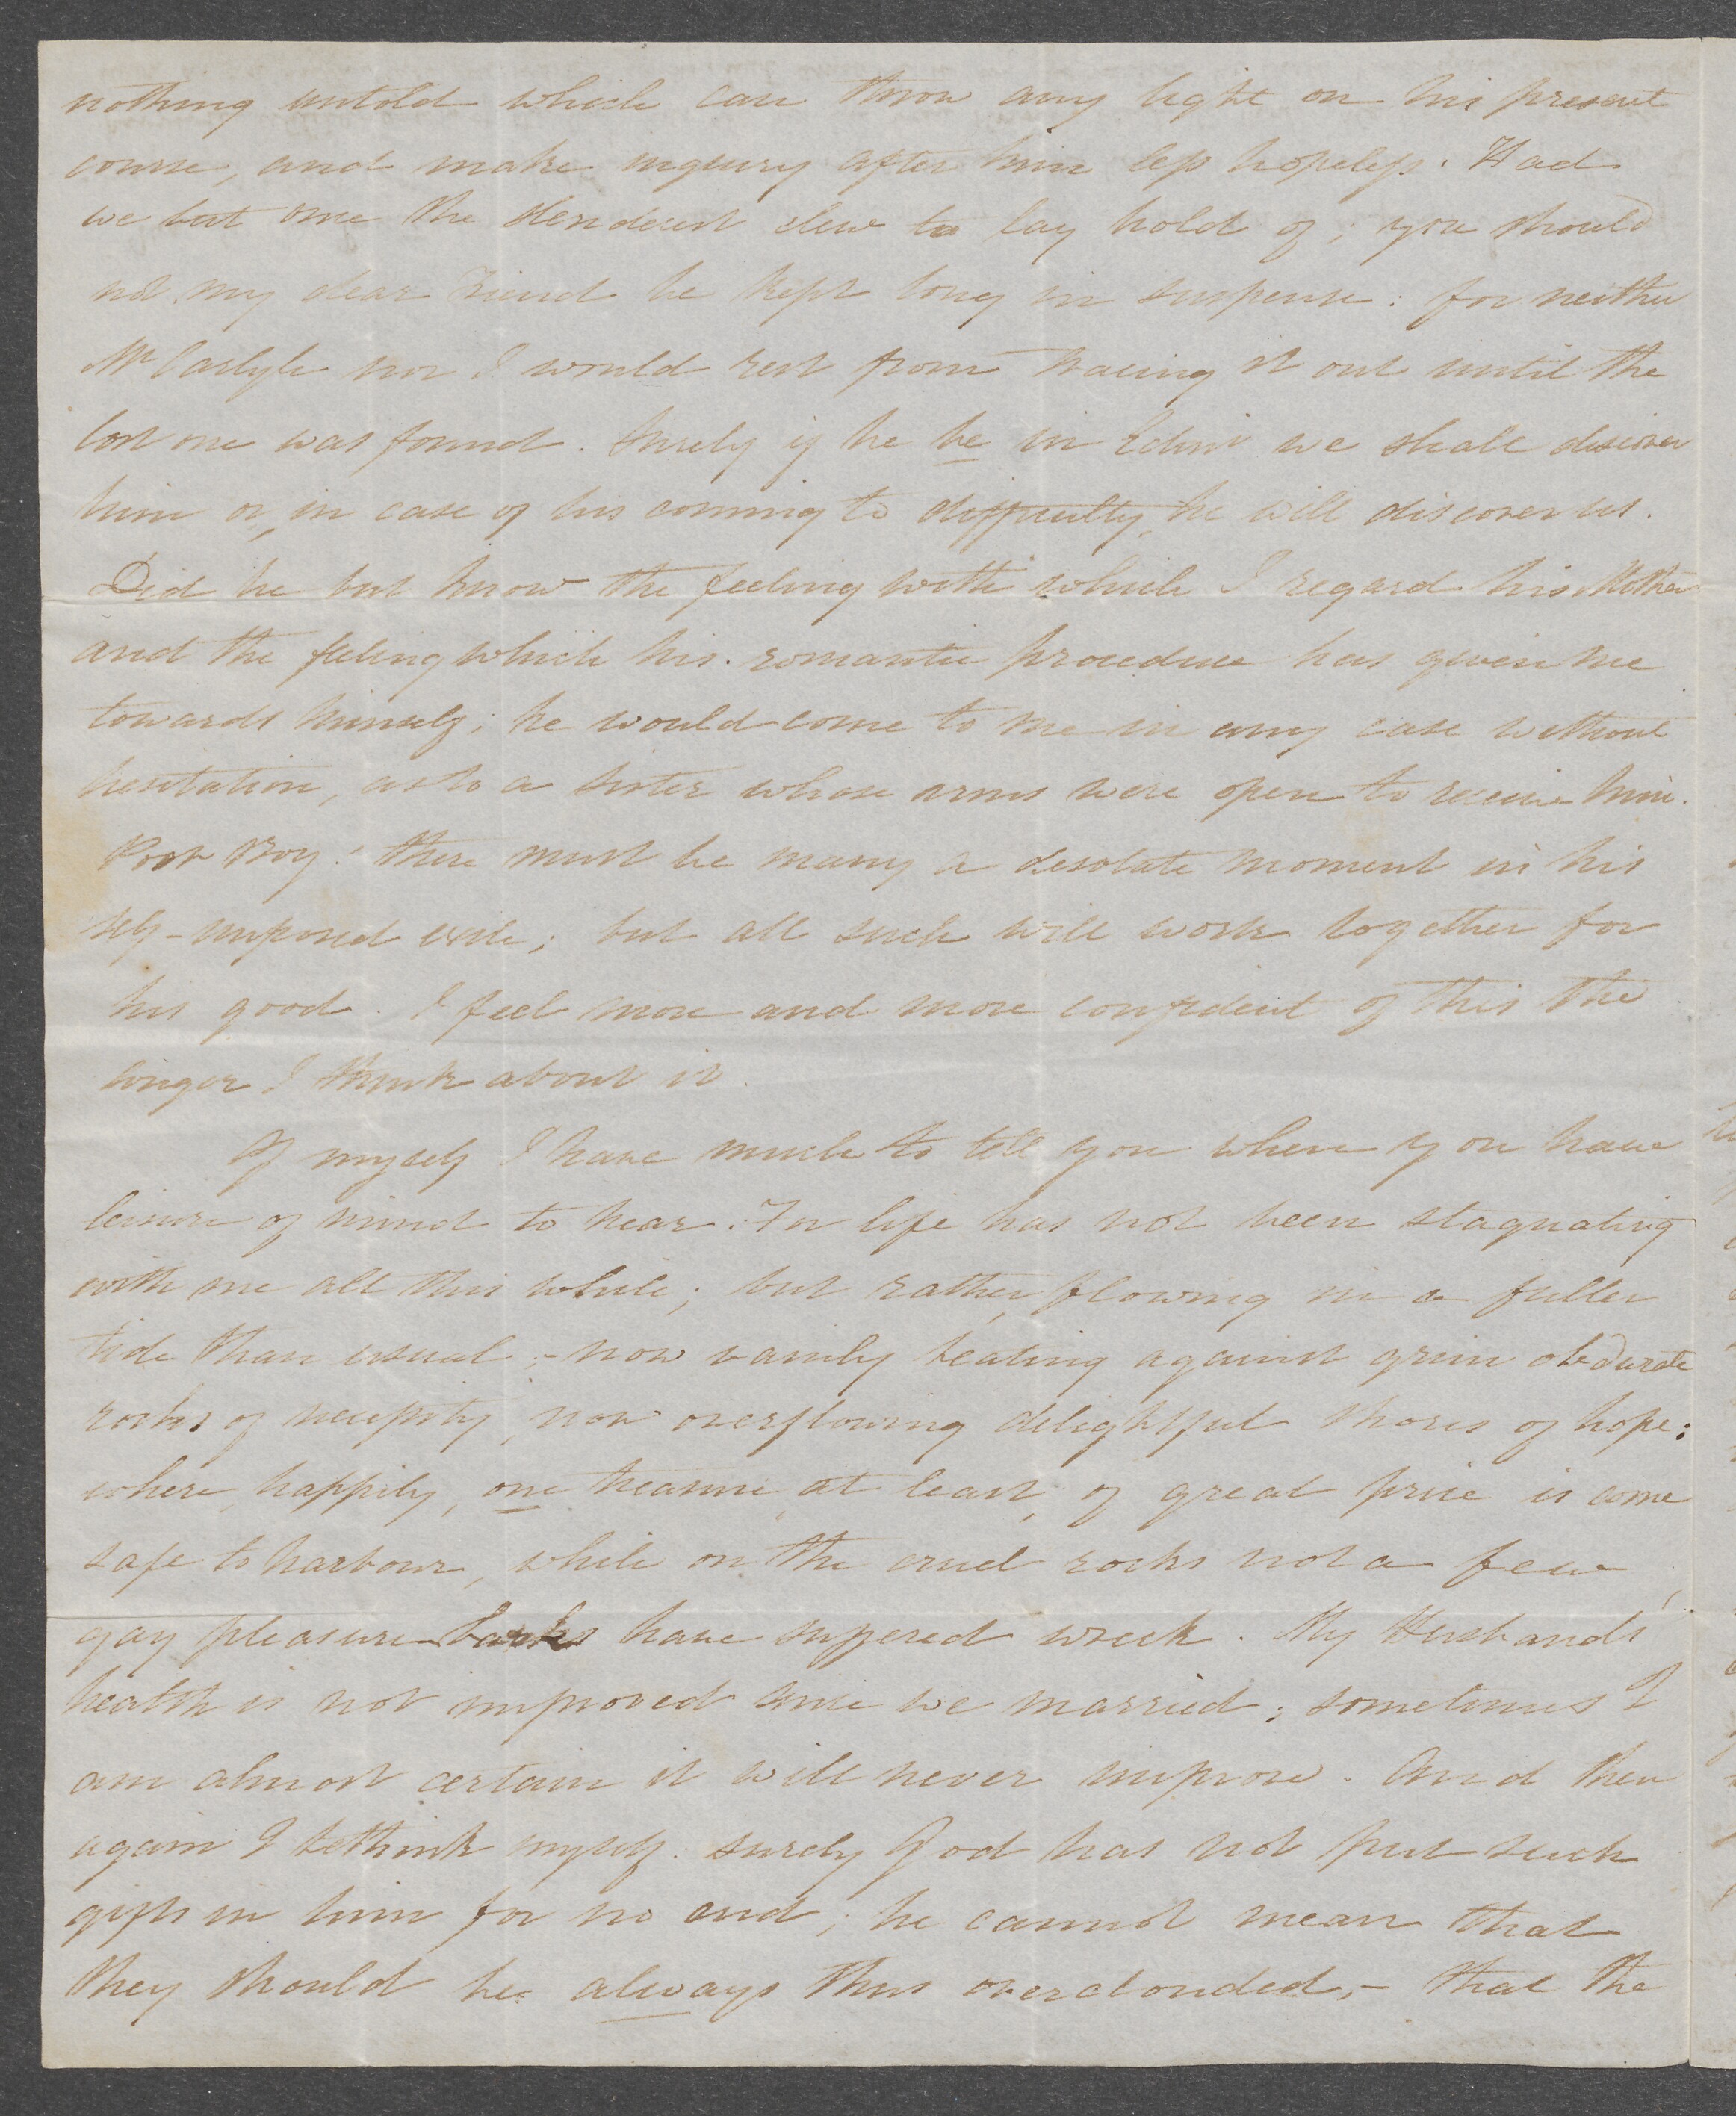 nothing untold which can throw any light on his present
course, and make inquiry after him less hopeless. Had
we but once the slenderest clew to lay hold of; you should
not my dear Friend be kept long in suspense: for neither
Mr Carlyle nor I would rest from tracing it out until the
lost one was found. Surely if he be in Edinr we shall discover
him or, in case of his coming to difficulty, he will discover us.
Did he but know the feeling with which I regard his Mother
and the feeling which his romantic procedure has given me
towards himself; he would come to me in any case without
hesitation, as to a Sister whose arms were open to receive him.
Poor Boy! there must be many a desolate moment in his
self-imposed exile; but all such will work together for
his good. I feel more and more confident of this the
longer I think about it.
Of myself I have much to tell you when you have
leisure of mind to hear. For life has not been stagnating
with me all this while; but rather flowing in a fuller
tide than usual;- now vainly beating against grim obdurate
rocks of necessity, now overflowing delightful shores of hope;
where, happily, one treasure, at least, of great price is come
safe to harbour, while on the cruel rocks not a few
gay pleasure-barks have suffered wreck. My Husbands
health is not improved since we married; sometimes I
am almost certain it will never improve. And then
again I bethink myself: surely God has not put such
gifts in him for no end; he cannot mean that
they should be always thus overclouded,- that the